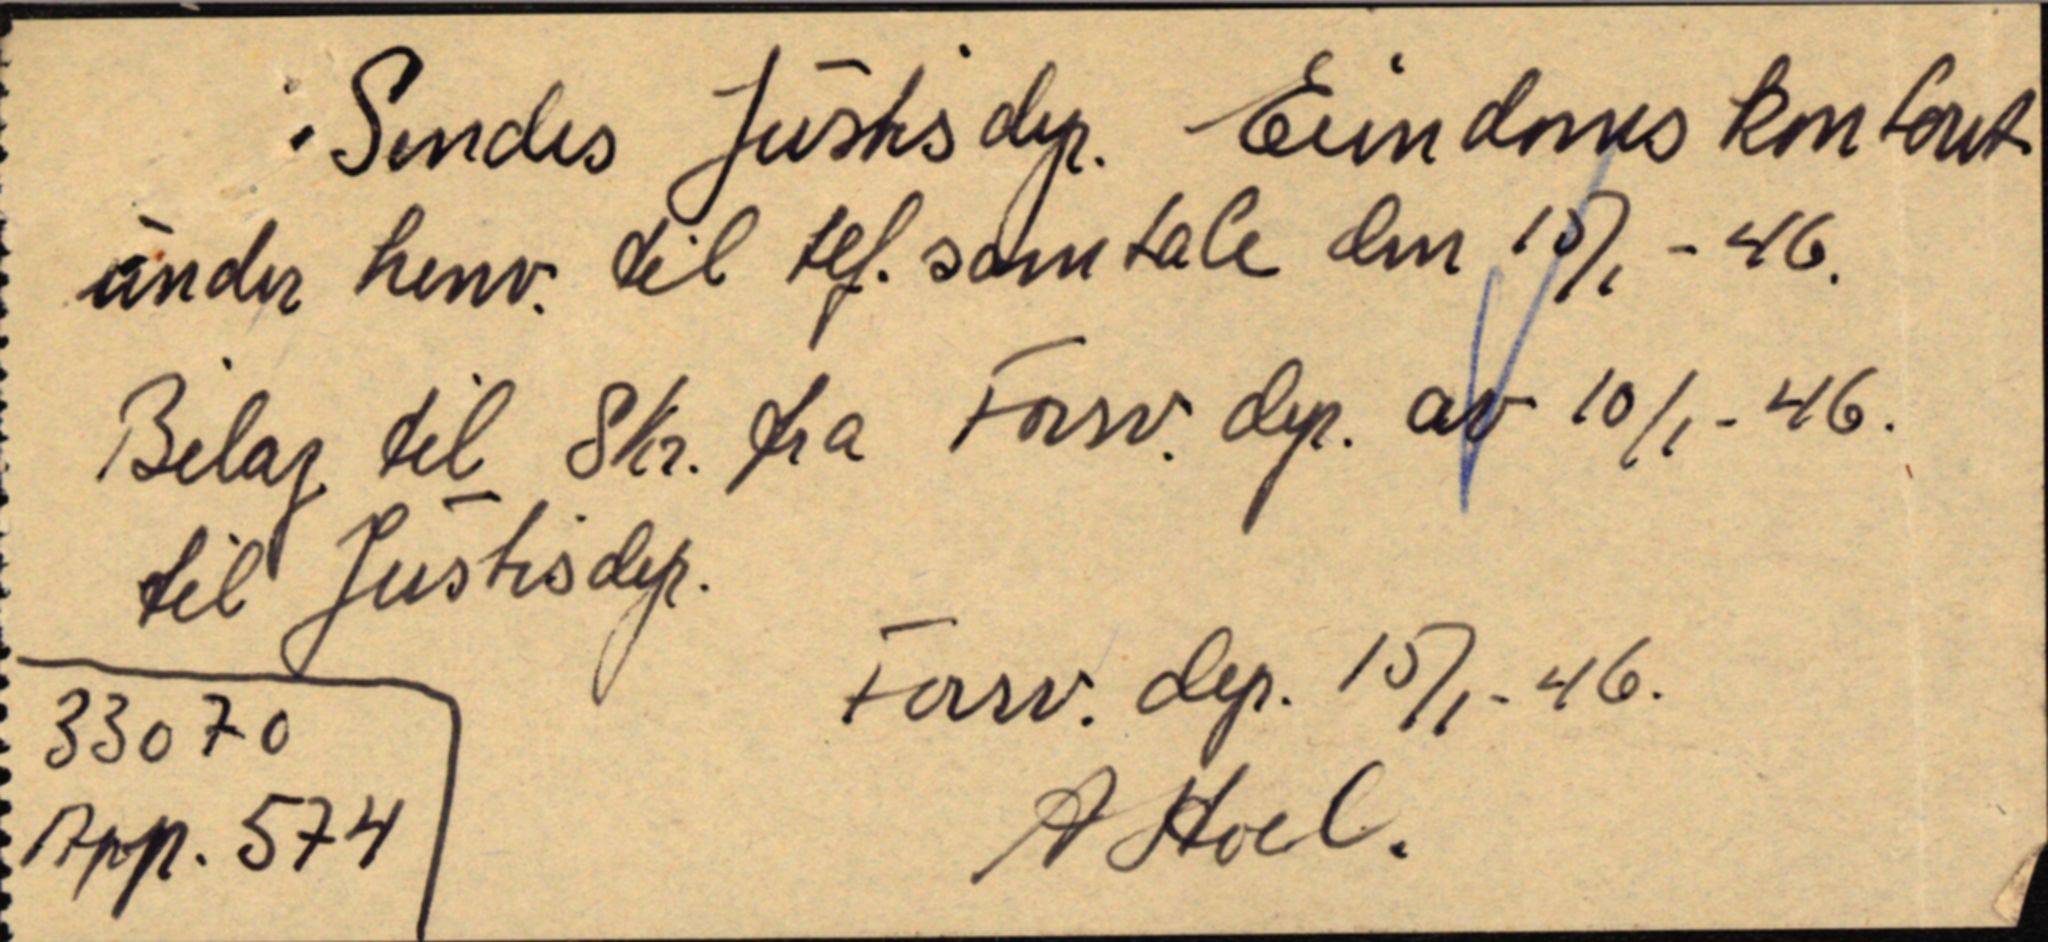 Sendes Justisdep. Eiendomskontoret
under henv. til tlf. samtale den 15/1 - 46.
Bilag til Skr. fra Forsv. dep. av 10/1 - 46.
til Justisdep.
Forsv. dep. 15/1 - 46.
A Hoel.
33070
App. 574